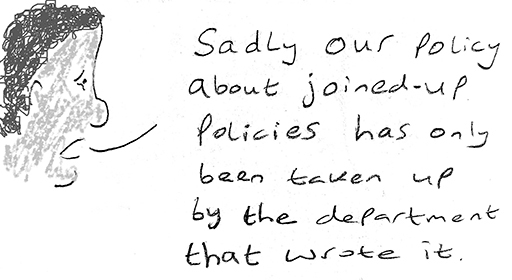 Sadly our policy
about joined-up
policies has only
been taken up
by the department
that wrote it.